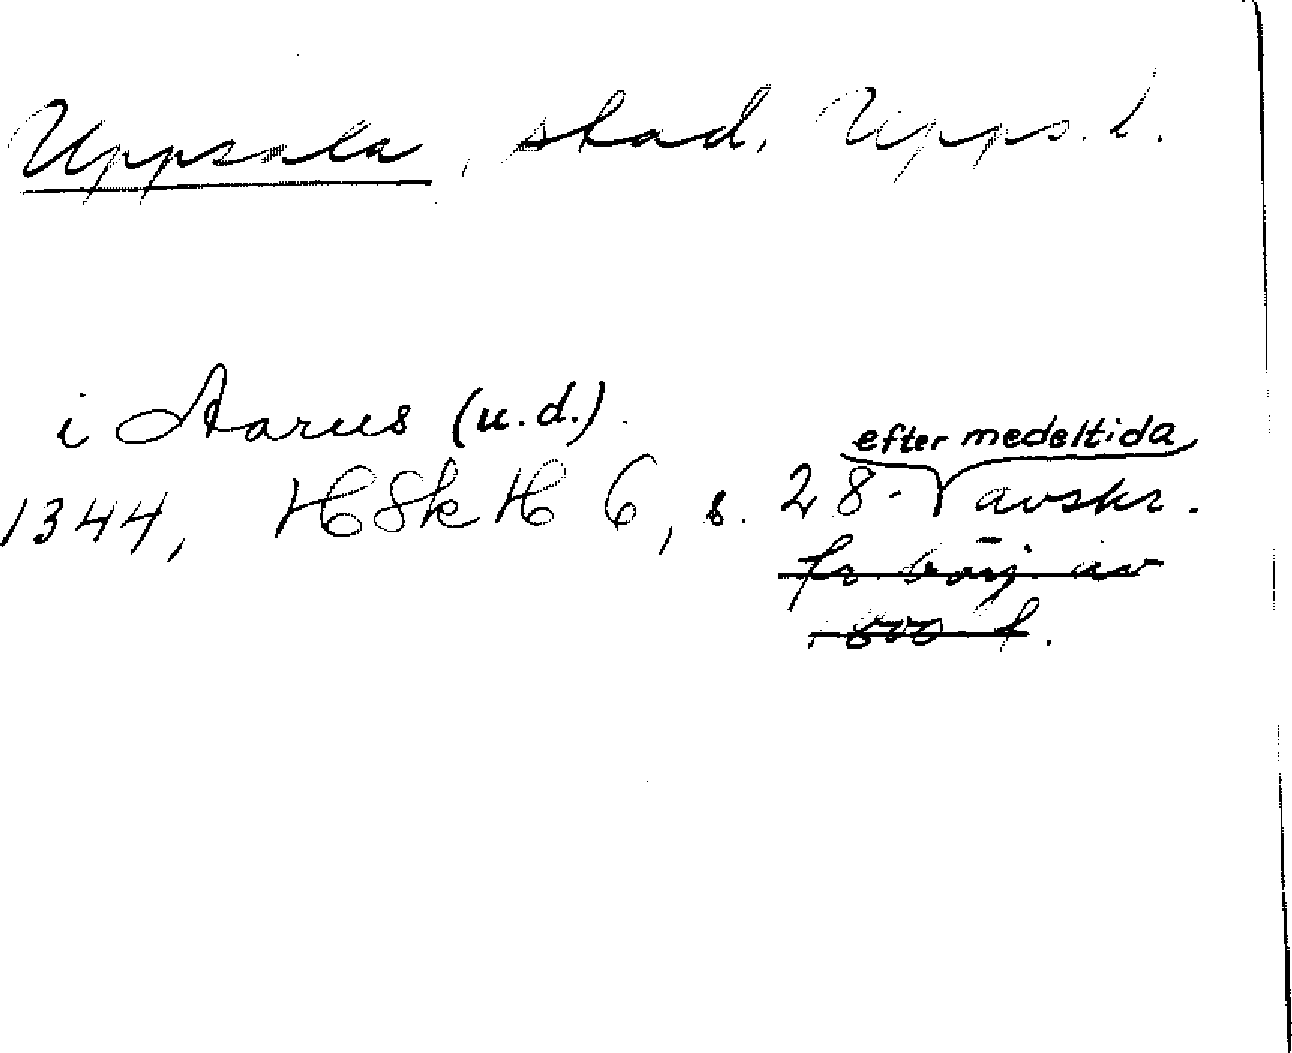 Uppsala, stad, Upps. l.
i Aarus (u.d.).
efter medeltida
1344, HSkH 6, s. 28. avskr.
fr. börj. av
1600 t.